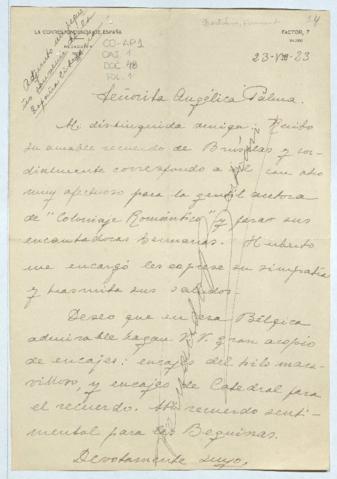 LA CORRESPONDENCIA DE ESPAÑA
REDACCIÓN
FACTOR, 7
MADRID
CO-AP1
CAJ. 1
DOC. 48
FOL. 1
23-VIII-23
Señorita Angélica Palma.
Mi distinguida amiga: Recibo
su amable recuerdo de Bruselas y cor-
dialmente correspondo a él con otro
muy afectuoso para la gentil autora
de "Coloniaje Romántico" y para sus
encantadoras hermanas. Huberto
me encargó les exprese su simpatía
y trasmita sus saludos.
Deseo que en esa Bélgica
admirable hagan V.V. gran acopio
de encajes: encajes del hilo mara-
villoso, y encajes de Catedral para
el recuerdo. Mi recuerdo senti-
mental para las Beguinas.
Devotamente suyo,